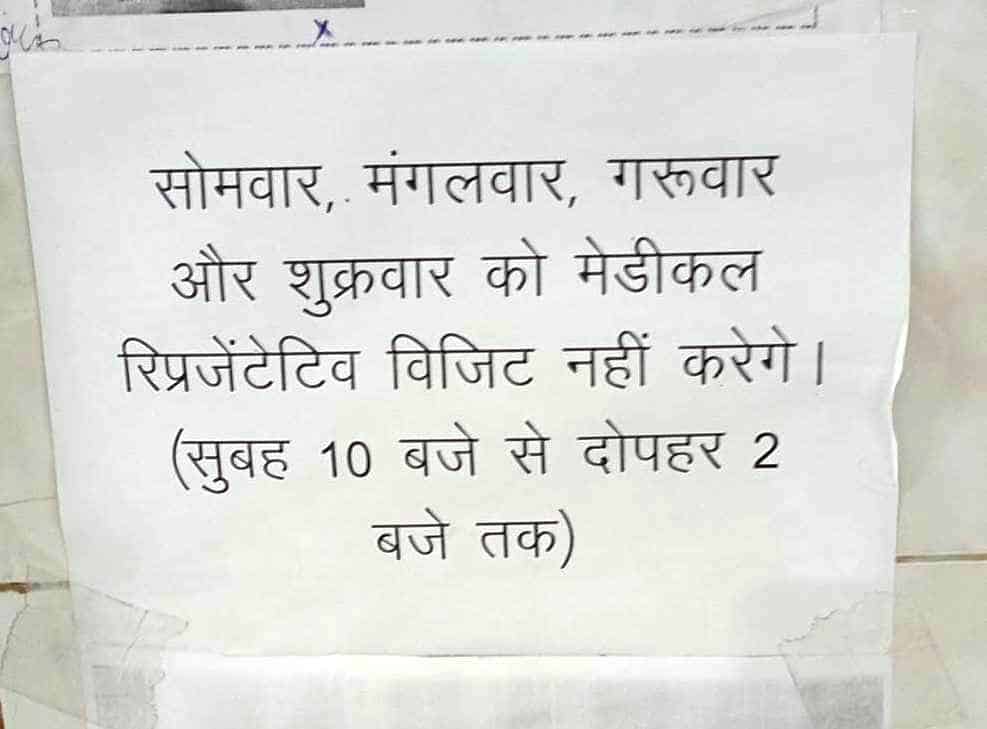 सोमवार, मंगलवार, गरूवार
और शुक्रवार को मेडीकल
रिप्रजेंटेटिव विजिट नहीं करेगे।
(सुबह 10 बजे से दोपहर 2
बजे तक)